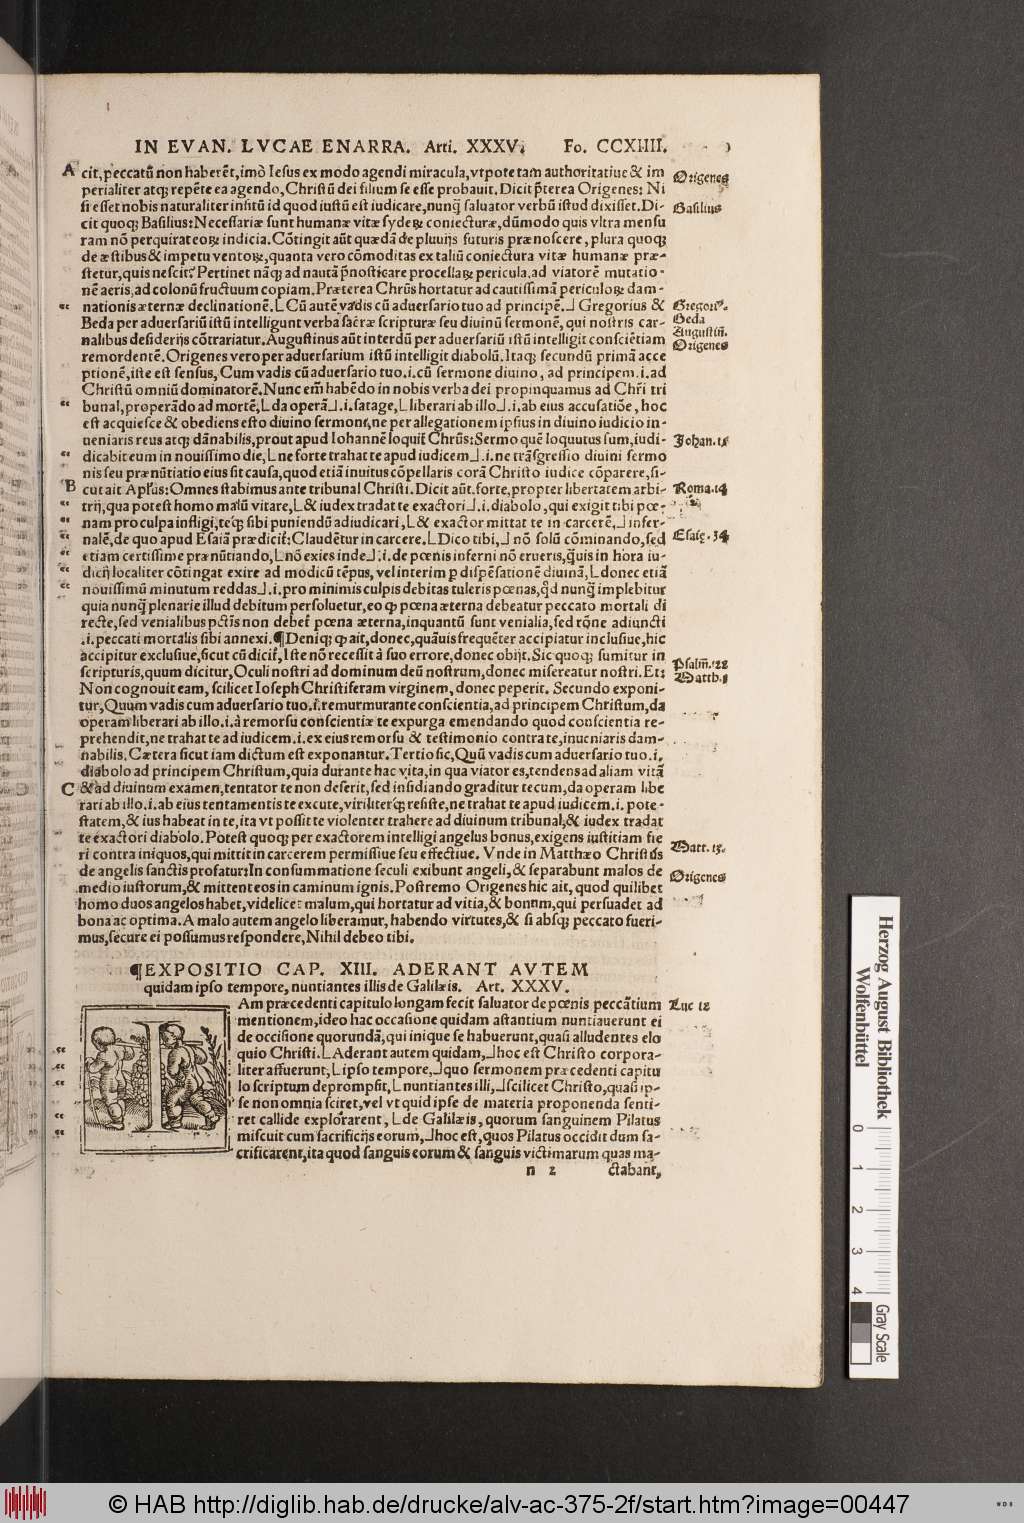 IN EVAN. LVCAE ENARRA. Arti. XXXV. Fo. CCXIIII.
A cit, peccatũ non haberẽt, imò Iesus ex modo agendi miracula, vtpote tam authoritatiue & im
perialiter atq; repẽte ea agendo, Christũ dei filium se esse probauit. Dicit p̃terea Origenes: Ni
si esset nobis naturaliter insitũ id quod iustũ est iudicare, nunq̃ saluator verbũ istud dixisset. Di-
cit quoq; Basilius: Necessariæ sunt humanæ vitæ sydeꝝ coniecturæ, dũmodo quis vltra mensu
ram nõ perquirat eoꝝ indicia. Cõtingit aũt quædã de pluuijs futuris prænoscere, plura quoq;
de æstibus & impetu ventoꝝ, quanta vero cõmoditas ex taliũ coniectura vitæ humanæ præ-
stetur, quis nescit? Pertinet nãq; ad nautã p̃nosticare procellaꝝ pericula, ad viatorẽ mutatio-
nẽ aeris, ad colonũ fructuum copiam. Præterea Chrũs hortatur ad cautissimã periculoꝝ dam-
nationis æternæ declinationẽ. L Cũ autẽ vadis cũ aduersario tuo ad principẽ. ⅃ Gregorius &
Beda per aduersariũ istũ intelligunt verba sacræ scripturæ seu diuinũ sermonẽ, qui nostris car-
nalibus desiderijs cõtrariatur. Augustinus aũt interdũ per aduersariũ istũ intelligit consciẽtiam
remordentẽ. Origenes vero per aduersarium istũ intelligit diabolũ. Itaq; secundũ primã acce
ptionẽ, iste est sensus, Cum vadis cũ aduersario tuo .i. cũ sermone diuino, ad principem .i. ad
Christũ omniũ dominatorẽ. Nunc em̃ habẽdo in nobis verba dei propinquamus ad Chr̃i tri
bunal, properãdo ad mortẽ, L da operã ⅃ .i. satage, L liberari ab illo ⅃ .i. ab eius accusatiõe, hoc
est acquiesce & obediens esto diuino sermone, ne per allegationem ipsius in diuino iudicio in-
ueniaris reus atq; dãnabilis, prout apud Iohannẽ loquit̃ Chrũs: Sermo quẽ loquutus sum, iudi-
dicabit eum in nouissimo die, L ne forte trahat te apud iudicem ⅃ .i. ne trãsgressio diuini sermo
nis seu prænũtiatio eius sit causa, quod etiã inuitus cõpellaris corã Christo iudice cõparere, si-
B cut ait Apl̃us: Omnes stabimus ante tribunal Christi. Dicit aũt, forte, propter libertatem arbi-
trij, qua potest homo malũ vitare, L & iudex tradat te exactori ⅃ .i. diabolo, qui exigit tibi pœ-
nam pro culpa infligi, teq; sibi puniendũ adiudicari, L & exactor mittat te in carcerẽ, ⅃ infer-
nalẽ, de quo apud Esaiã prædicit̃: Claudẽtur in carcere. L Dico tibi, ⅃ nõ solũ cõminando, sed
etiam certissime prænũtiando, L nõ exies inde ⅃ .i. de pœnis inferni nõ erueris, q̃uis in hora iu-
dicij localiter cõtingat exire ad modicũ tẽpus, vel interim ꝑ dispẽsationẽ diuinã, L donec etiã
nouissimũ minutum reddas ⅃ .i. pro minimis culpis debitas tuleris pœnas, q̃d nunq̃ implebitur
quia nunq̃ plenarie illud debitum persoluetur, eo ꝙ pœna æterna debeatur peccato mortali di
recte, sed venialibus pctĩs non debet̃ pœna æterna, inquantũ sunt venialia, sed rõne adiuncti
.i. peccati mortalis sibi annexi. ¶ Deniq; ꝙ ait, donec, quãuis frequẽter accipiatur inclusiue, hic
accipitur exclusiue, sicut cũ dicit̃, Iste nõ recessit à suo errore, donec obijt. Sic quoq; sumitur in
scripturis, quum dicitur, Oculi nostri ad dominum deũ nostrum, donec misereatur nostri. Et:
Non cognouit eam, scilicet Ioseph Christiferam virginem, donec peperit. Secundo exponi-
tur, Quum vadis cum aduersario tuo .i. remurmurante conscientia, ad principem Christum, da
operam liberari ab illo .i. à remorsu conscientiæ te expurga emendando quod conscientia re-
prehendit, ne trahat te ad iudicem .i. ex eius remorsu & testimonio contra te, inueniaris dam-
nabilis. Cætera sicut iam dictum est exponantur. Tertio sic, Quũ vadis cum aduersario tuo .i.
diabolo ad principem Christum, quia durante hac vita, in qua viator es, tendens ad aliam vitã
C & ad diuinum examen, tentator te non deserit, sed insidiando graditur tecum, da operam libe
rari ab illo .i. ab eius tentamentis te excute, viriliterq; resiste, ne trahat te apud iudicem .i. pote-
statem, & ius habeat in te, ita vt possit te violenter trahere ad diuinum tribunal, & iudex tradat
te exactori diabolo. Potest quoq; per exactorem intelligi angelus bonus, exigens iustitiam fie
ri contra iniquos, qui mittit in carcerem permissiue seu effectiue. Vnde in Matthæo Christũs
de angelis sanctis profatur: In consummatione seculi exibunt angeli, & separabunt malos de
medio iustorum, & mittent eos in caminum ignis. Postremo Origenes hic ait, quod quilibet
homo duos angelos habet, videlicet malum, qui hortatur ad vitia, & bonum, qui persuadet ad
bona ac optima. A malo autem angelo liberamur, habendo virtutes, & si absq; peccato fueri-
mus, secure ei possumus respondere, Nihil debeo tibi.
Origenes
Basilius
Gregori⁹.
Beda
Augustin̄.
Origenes
Johan. 12
Roma. 14
Esaię. 34
Psalm̄. 122
Matth. 1
Matt. 13.
Origenes
¶EXPOSITIO CAP. XIII. ADERANT AVTEM
quidam ipso tempore, nuntiantes illis de Galilæis. Art. XXXV.
IAm præcedenti capitulo longam fecit saluator de pœnis peccãtium
mentionem, ideo hac occasione quidam astantium nuntiauerunt ei
de occisione quorundã, qui inique se habuerunt, quasi alludentes elo
quio Christi. L Aderant autem quidam, ⅃ hoc est Christo corpora-
liter assuerunt, L ipso tempore, ⅃ quo sermonem præcedenti capitu
lo scriptum deprompsit, L nuntiantes illi, ⅃ scilicet Christo, quasi ip-
se non omnia sciret, vel vt quid ipse de materia proponenda senti-
ret callide explorarent, L de Galilæis, quorum sanguinem Pilatus
miscuit cum sacrificijs eorum, ⅃ hoc est, quos Pilatus occidit dum sa-
crificarent, ita quod sanguis eorum & sanguis victimarum quas ma-
Luc 12
n 2 ctabant,
Herzog August Bibliothek
Wolfenbüttel
0 1 2 3 4
Gray Scale
© HAB http://diglib.hab.de/drucke/alv-ac-375-2f/start.htm?image=00447